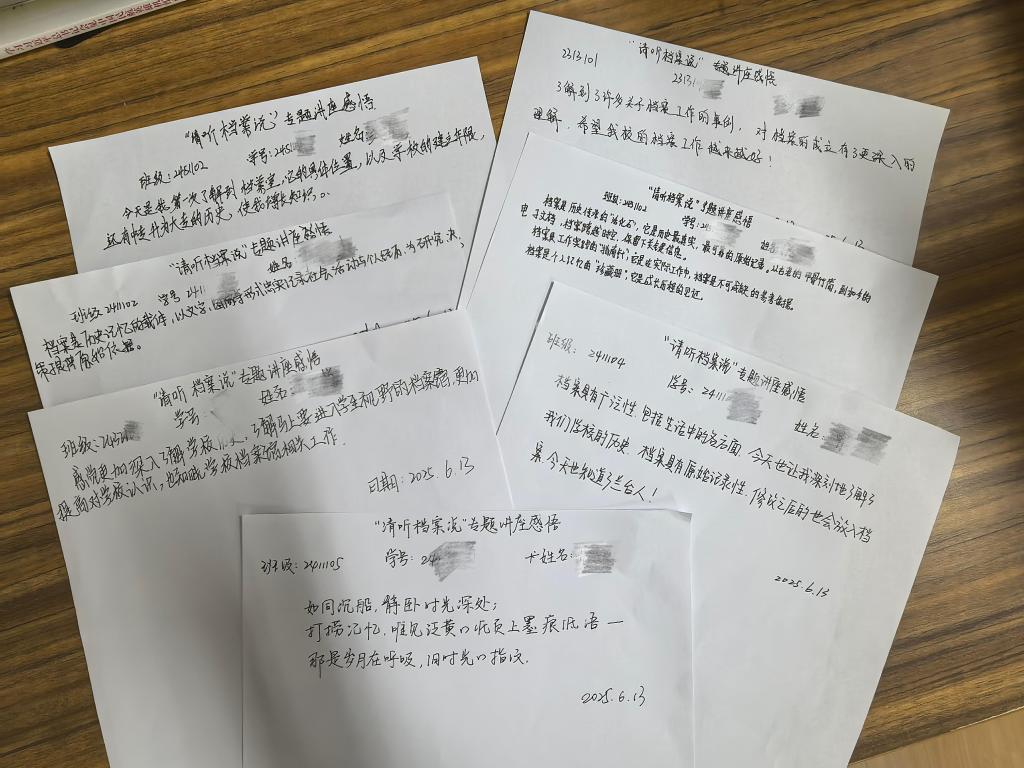 "请听档案说"专题讲座感悟
班级:2451102 学号:245 姓名:
今天是我第一次了解到档案室,它的具体位置,以及学校的建立年限,
还有中专升为大专的历史,使我博长知识。
"请听档案说"专题讲座感悟
2313101 23131
了解到了许多关于档案工作的事例,对档案的成立有了更深入的
理解,希望我校的档案工作越来越好!
6.13
"请听档案说"专题讲座感悟
班级 2411102 学号 2411 姓名
档案是历史记忆的载体,以文字、图像等形式忠实记录社会活动与个人经历,为研究、决
策提供原始依据。
"请听档案说"专题讲座感悟
班级:2451102 学号:245 姓名
档案是历史传承的"活化石",它是历史最真实、最可靠的原始记录。从古老的甲骨竹简,到如今的
电子文档,档案跨越时空,保留下关键信息。
档案是工作实践的"指南针",它是在实际工作中,档案是不可或缺的参考依据。
档案是个人记忆的"珍藏册",它是成长历程的见证。
"请听档案说"专题讲座感悟
班级: 学号: 姓名:
感觉更加深入了解学校历史,了解到上要进入学生视野的档案馆,更加
提高对学校认识,也知晓学校档案馆相关工作.
日期:2025.6.13
"请听档案说"专题讲座感悟
班级: 2411104 学号: 24111 姓名:
档案具有广泛性,包括生活中的各方面,今天也让我深刻地了解了
我们学校的历史,档案具有原始记录性,修改后的也会放入档
案,今天也知道了兰台人!
2025.6.13
"请听档案说"专题讲座感悟
班级: 2411105 学号: 24 姓名:
如同沉船,静卧时光深处;
打捞记忆,唯见泛黄的纸页上墨痕低语—
那是岁月在呼吸,旧时光的指纹.
2025.6.13